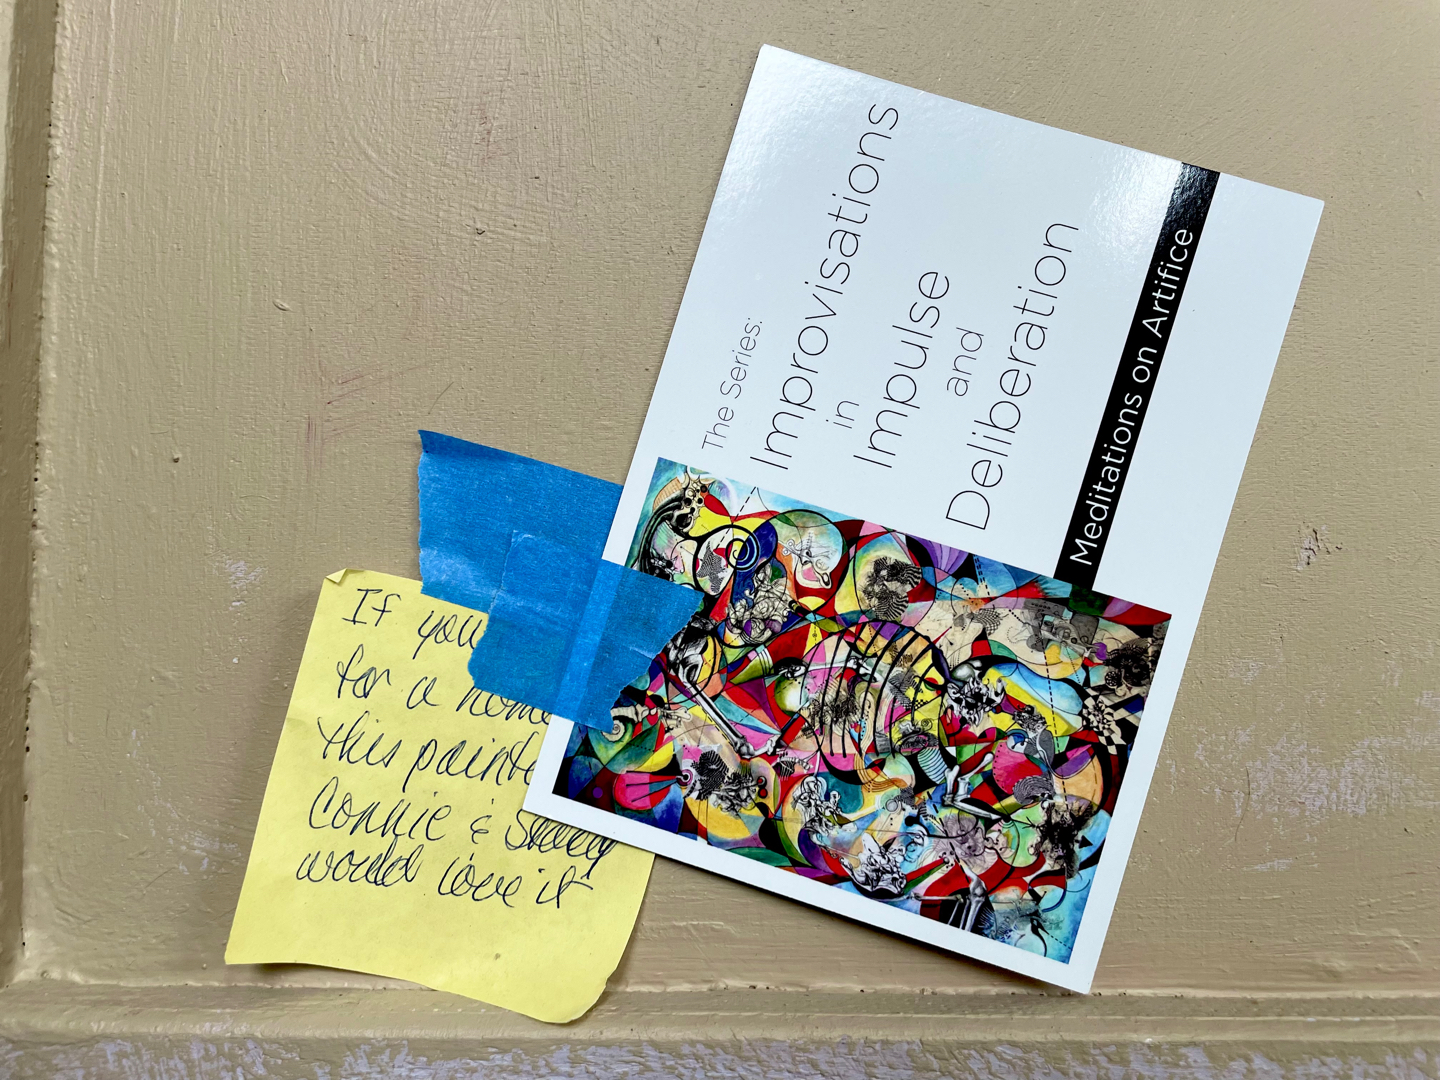 The Series:
Improvisations
in
Impulse
and
Deliberation
Meditations on Artifice
If you
for a home
this painte
Connie &
would love it